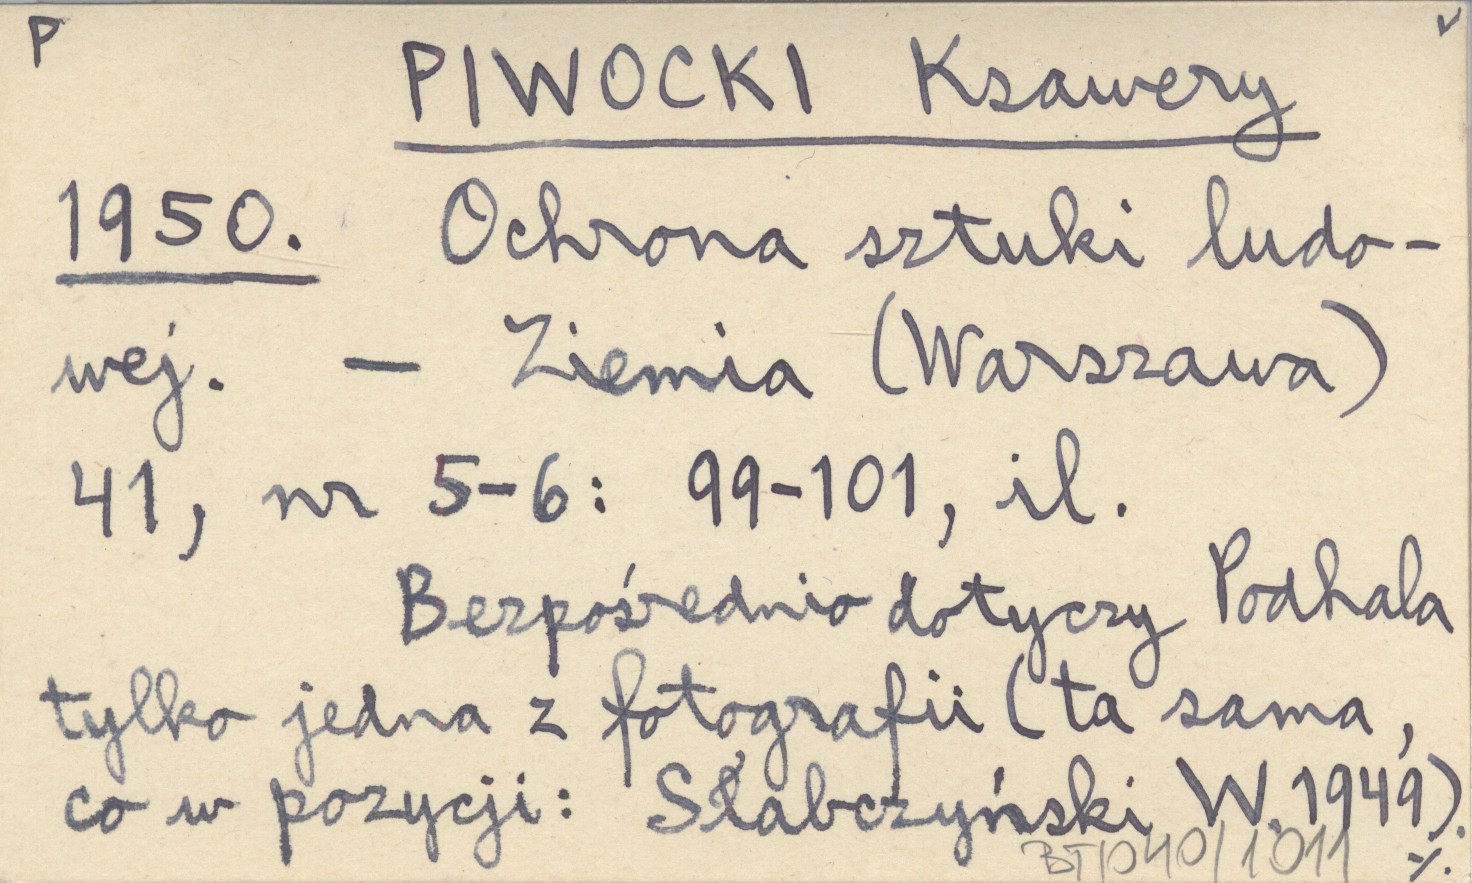 P
PIWOCKI Ksawery
1950. Ochrona sztuki ludo-
wej. — Ziemia (Warszawa)
41, nr 5-6: 99-101, il.
Bezpośrednio dotyczy Podhala
tylko jedna z fotografii (ta sama,
co w pozycji: Słabczyński W. 1949).
BTP040/1011